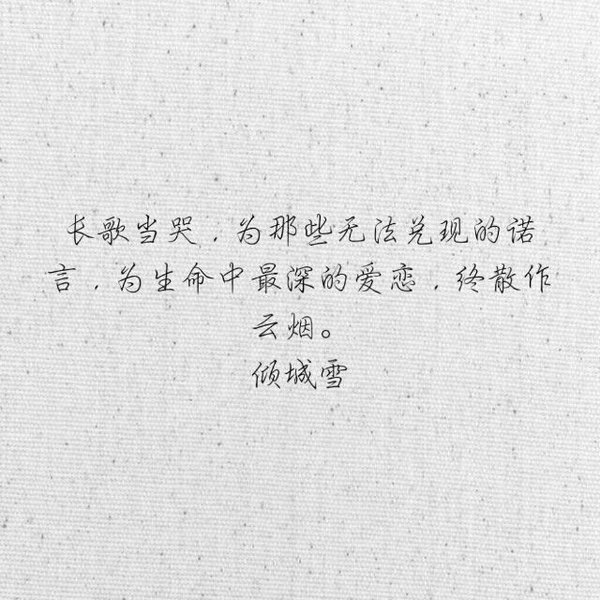 长歌当哭，为那些无法兑现的诺
言，为生命中最深的爱恋，终散作
云烟。
倾城雪